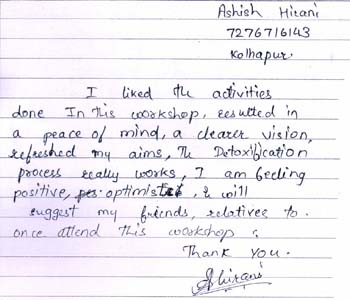 Ashish Hirani
7276716143
Kolhapur
I liked the activities
done In this workshop, resulted in
a peace of mind, a clearer vision,
refreshed my aims, The Detoxification
process really works, I am feeling
positive, optimistic, & will
suggest my friends, relatives to
once attend this workshop.
Thank you.
AHirani